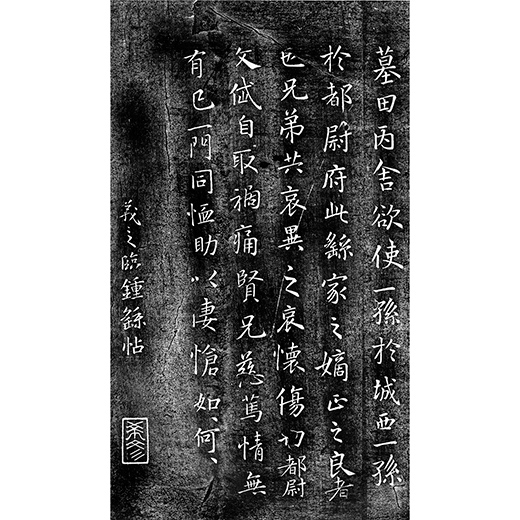 墓田丙舍欲使一孫於城西一孫
於都尉府此繇家之嫡正之良者
也兄弟共哀異之哀懷傷切都尉
文俗自取禍痛賢兄慈篤情無
有已一門同恤助以悽愴如何、
羲之臨鍾繇帖